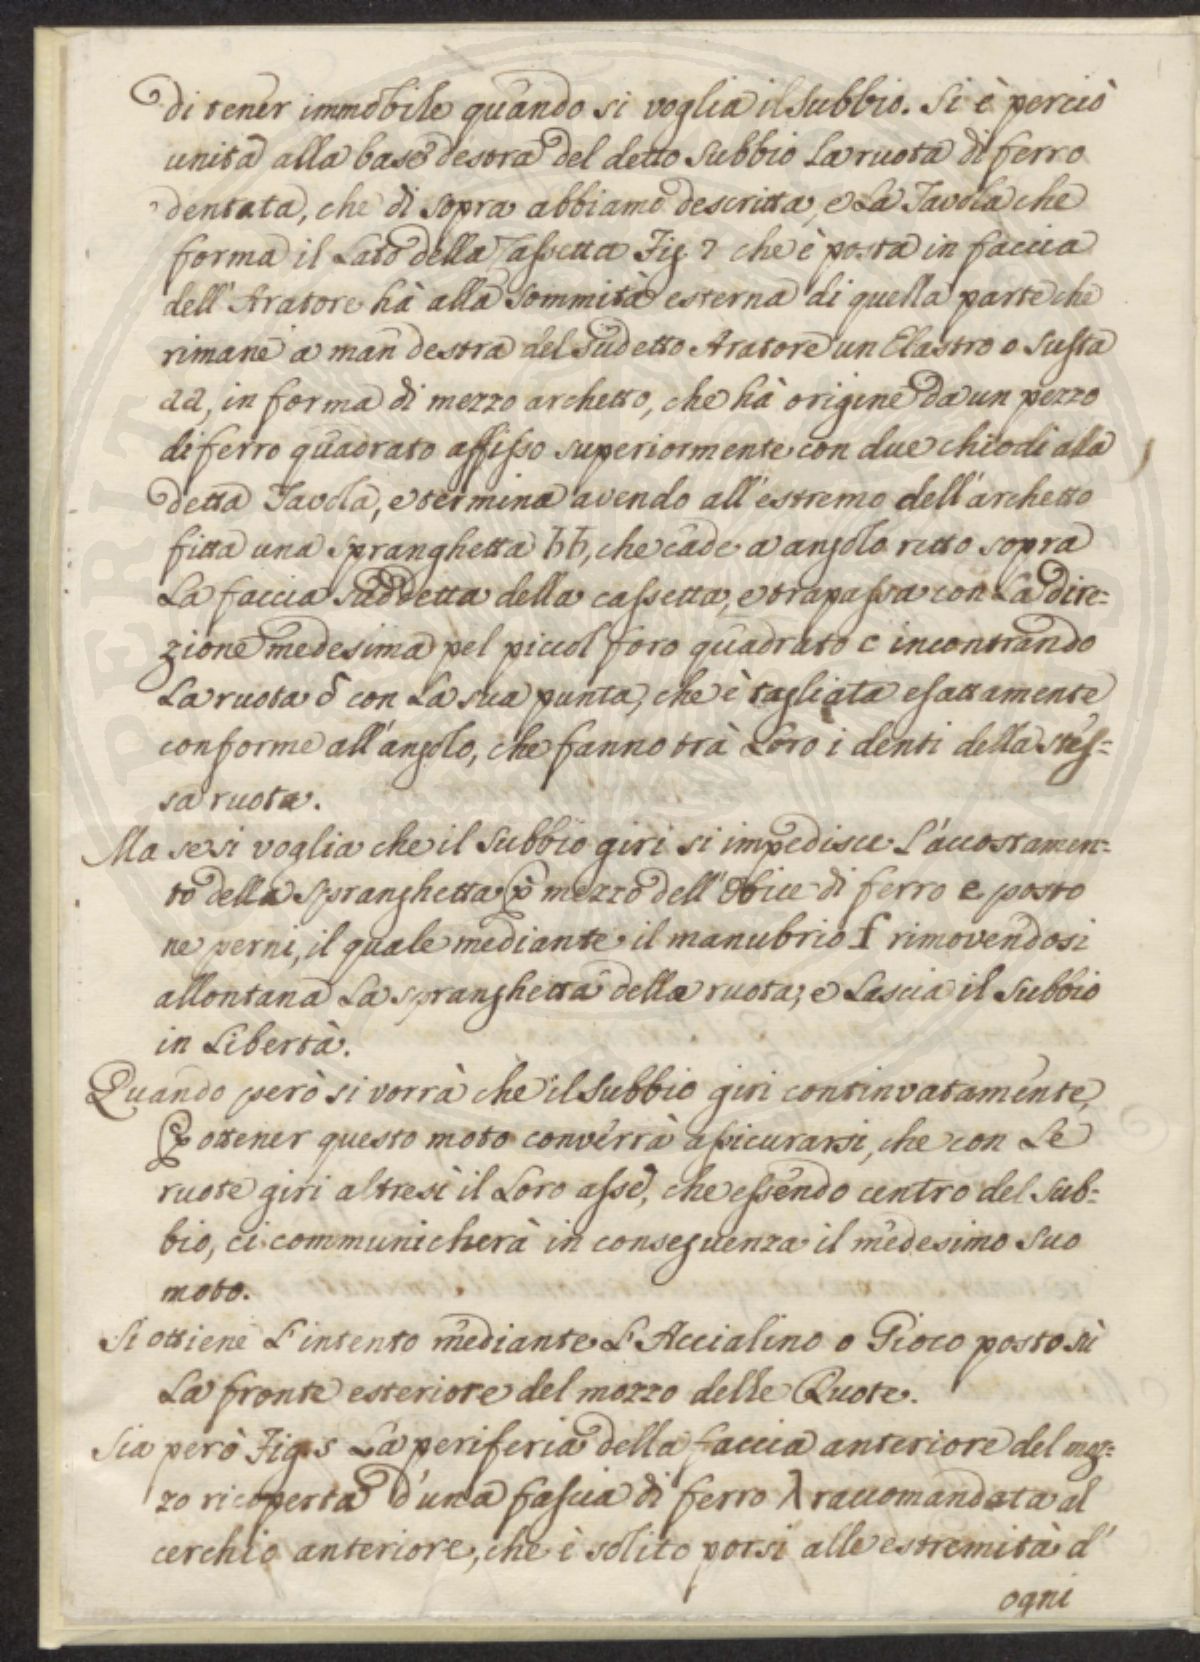 di tener immobile quando si voglia il Subbio. Si è perciò
unita alla base destra del detto Subbio La ruota di ferro
dentata, che di sopra abbiamo descritta, e La Tavola che
forma il Lato della Cassetta Fig. 7 che è posta in faccia
dell'Aratore hà alla Sommità esterna di quella parte che
rimane a man destra del Sudetto Aratore un Elastro o Susta
aa, in forma di mezzo archetto, che hà origine da un pezzo
di ferro quadrato affisso superiormente con due chiodi alla
detta Tavola, e termina avendo all'estremo dell'archetto
fitta una Spranghetta bb, che cade a angolo retto sopra
La faccia Suddetta della cassetta, e trapassa con La dire=
zione medesima pel piccol foro quadrato c incontrando
La ruota δ con La sua punta, che è tagliata esattamente
conforme all'angolo, che fanno trà Loro i denti della stes=
sa ruota.
Ma se si voglia che il Subbio giri si impedisce L'accostamen=
to della Spranghetta p mezzo dell'Obice di ferro e posto
ne perni, il quale mediante il manubrio f rimovendosi
allontana La spranghetta della ruota, e Lascia il Subbio
in Libertà.
Quando però si vorrà che il Subbio giri continvatamente,
p ottener questo moto converrà assicurarsi, che con Le
ruote giri altresì il Loro asse, che essendo centro del Sub=
bio, ci communicherà in conseguenza il medesimo Suo
moto.
Si ottiene L'intento mediante L'Accialino o Gioco posto sù
La fronte esteriore del mozzo delle Ruote.
Sia però Fig. 5 La periferia della faccia anteriore del moz=
zo ricoperta d'una fascia di ferro λ raccomandata al
cerchio anteriore, che è solito porsi alle estremità d'
ogni